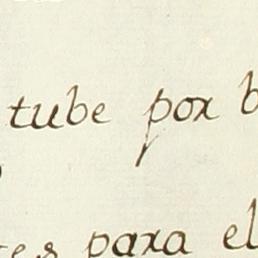 tube por b
es para el